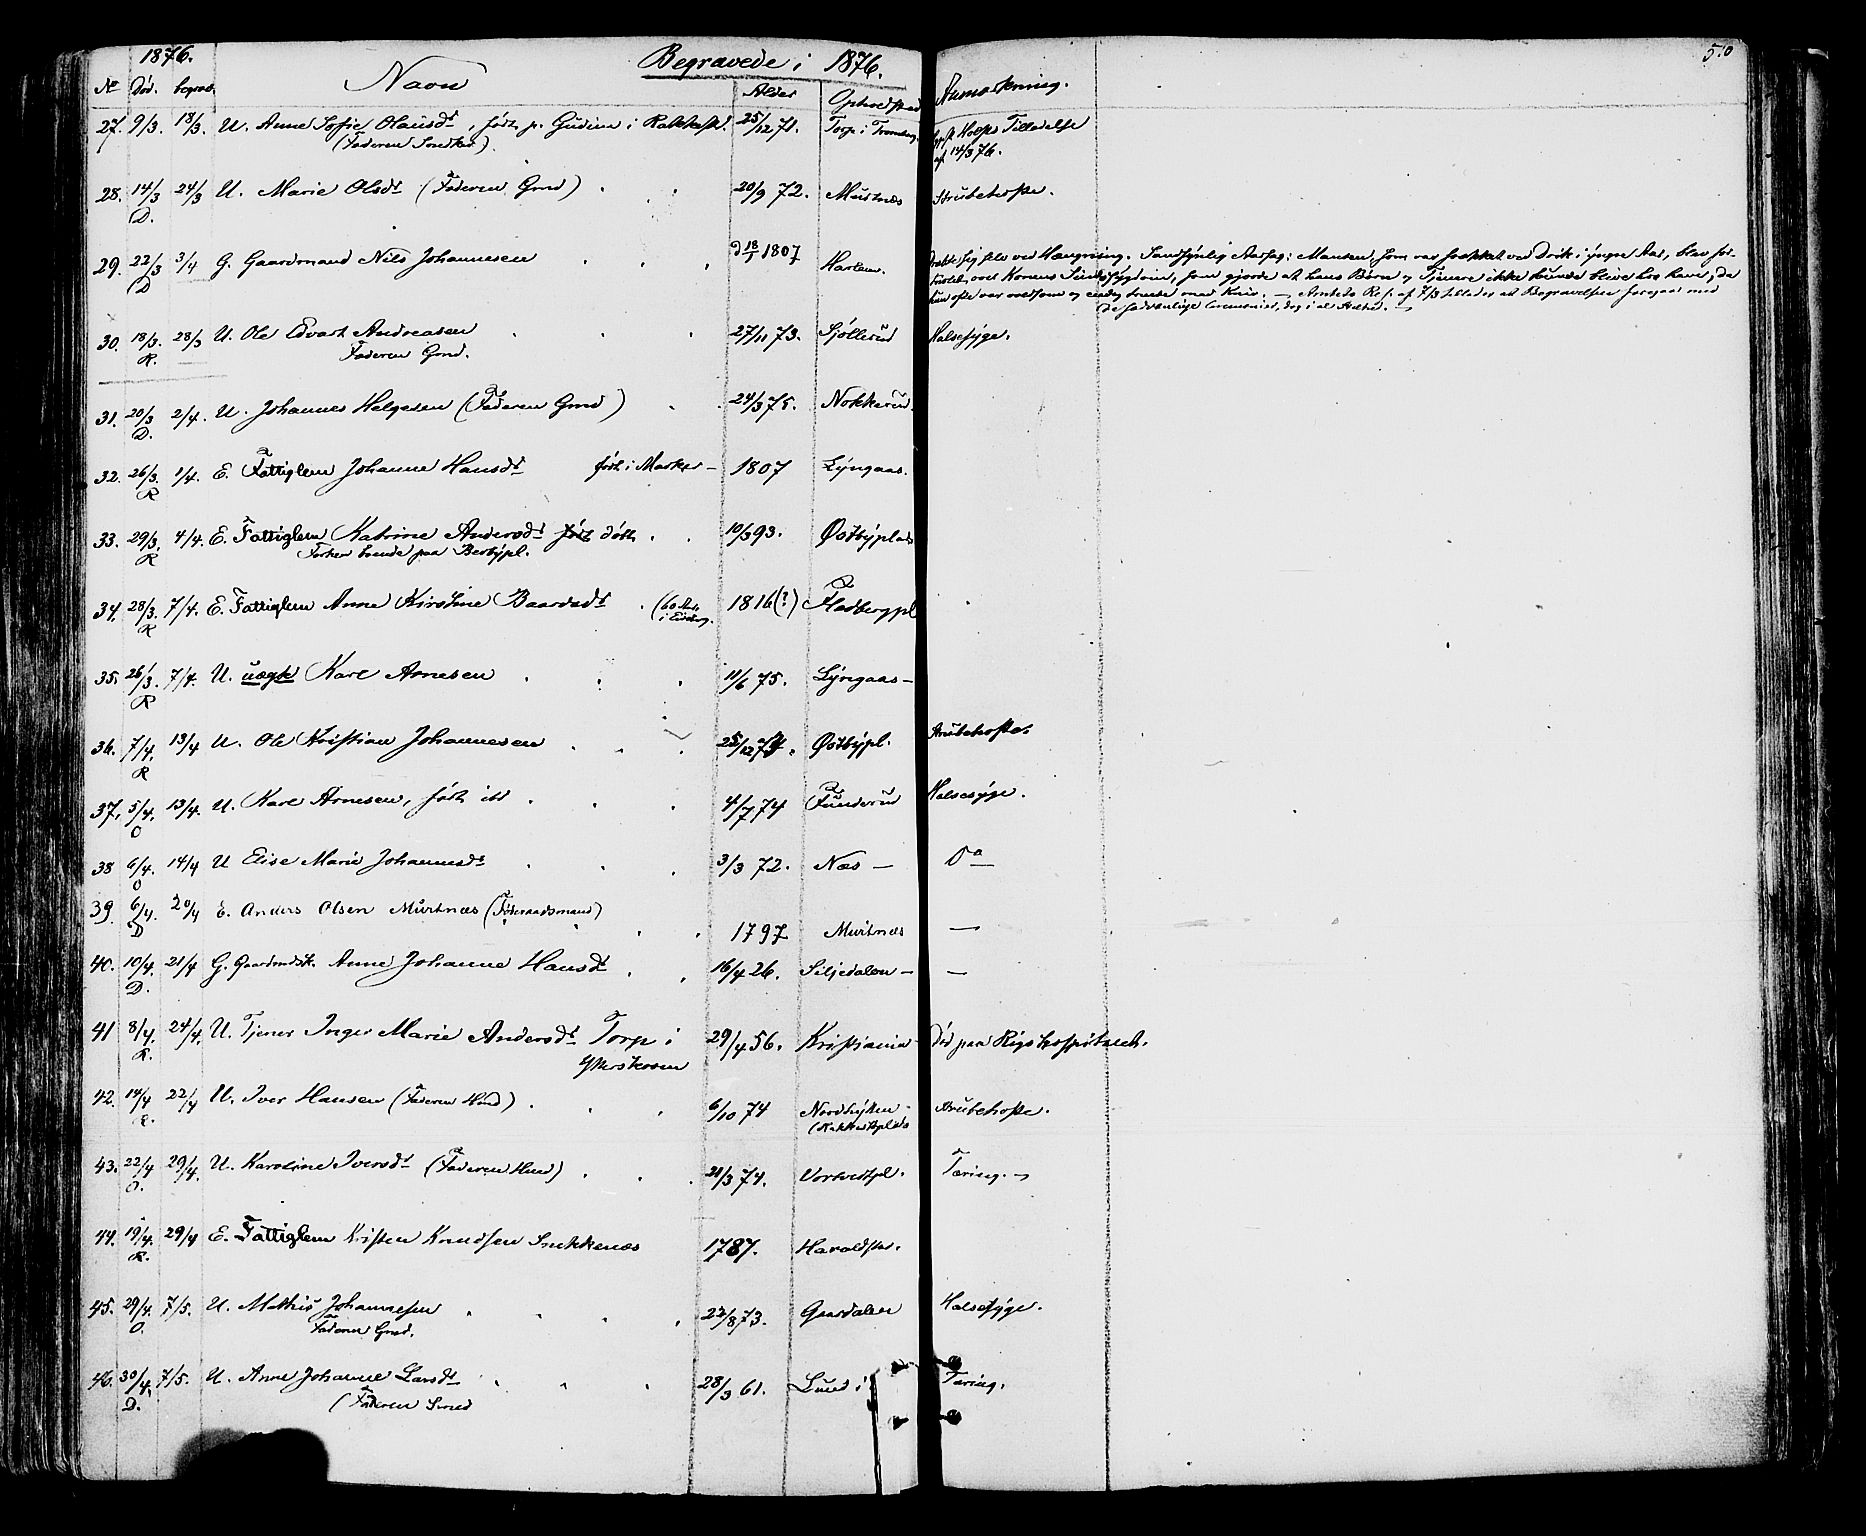 1876. Begravede i 1876. 5.0
No Død. begrav. Navn Alder Opholdssted Anmærkning.
27. 9/3. 18/3. U. Anne Sofie Olausdt, født p. Gudim i Rakkest. 25/12 71. Torp i Trømborg
(Faderen Smedkar).
Tilladelse
af 14/3 76.
28. 14/3 24/3 U. Marie Olsdt (Faderen Grmd) 20/9 72. Mustnæs Strubehoste.
D.
29. 22/3 3/4 G. Gaardmand Nils Johannesen d 18/1 1807 Harlem.
D
sig selv ved Hængning. Sandsynlig Aarsag: Manden, som var svækket ved Drik i yngre Aar, blev for-
over Konens Sindssygdom, som gjorde at hans Børn og Tjenere ikke kunde blive hos ham, da
hun ofte var voldsom og endog truede med Kniv. — Amtets Res. af 7/3 tillader at Begravelsen foregaar med
de sædvanlige Ceremonier, dog i al Stilhed. —
30. 18/3. 28/3 U. Ole Edvart Andreasen 27/11 73. Sjøllerud Halsesyge.
R. Faderen Grmd.
31. 20/3 2/4. U. Johannes Helgesen (Faderen Grmd) 24/3 75. Nokkerud.
D.
32. 26/3. 1/4. E. Fattiglem Johanne Hansdt født i Marker — 1807 Lyngaas.
R
33. 29/3. 4/4. E. Fattiglem Katrine Andersdt født døbt 10/3 93. Østbyplads
R Forhen boende paa Berbypl.
34. 28/3. 7/4. E. Fattiglem Anne Kirstine Baardsdt (60 Aar 1816(?) Fladbergpl
R i Eidsberg.
35. 26/3. 7/4. U. uægte Karl Arnesen 11/6 75. Lyngaas —
R
36. 7/4. 13/4 U. Ole Kristian Johannesen 25/12 74. Østbypl. Strubehoste.
R
37. 5/4. 13/4. U. Karl Arnesen, født ibd 4/7 74 Funderud Halsesyge.
O
38 6/4. 14/4 U Elise Marie Johannesdt 3/3 72. Næs — Do
O
39. 6/4. 20/4 E. Anders Olsen Murtnæs (Føderaadsmand) 1797 Murtnæs —
D
40. 10/4. 21/4 G. Gaardmdsk. Anne Johanne Hansdt 16/4 26. Siljedalen — —
D.
41 8/4. 24/4. U. Tjener Inger Marie Andersdt Torp i 29/4 56. Kristiania Død paa Rigshospitalet.
R. Ytterskoven
42. 14/4 22/4 U. Iver Hansen (Faderen Hmd) 6/10 74 Nordbysten Strubehoste.
R. (Rakkestplads
43. 22/4 29/4. U. Karoline Iversdt (Faderen Hmd) 21/3 74. Vortvedtpl. Tæring. —
O.
44. 19/4. 29/4 E. Fattiglem Kristen Knudsen Snekkenæs 1787. Haraldstad.
R.
45. 29/4. 7/5. U. Mathis Johannesen 22/8 73. Gaardalen Halsesyge.
O. Faderen Grmd.
46. 30/4. 7/5. U. Anne Johanne Larsdt 28/3 61. Lund i Tæring.
D. (Faderen Smed